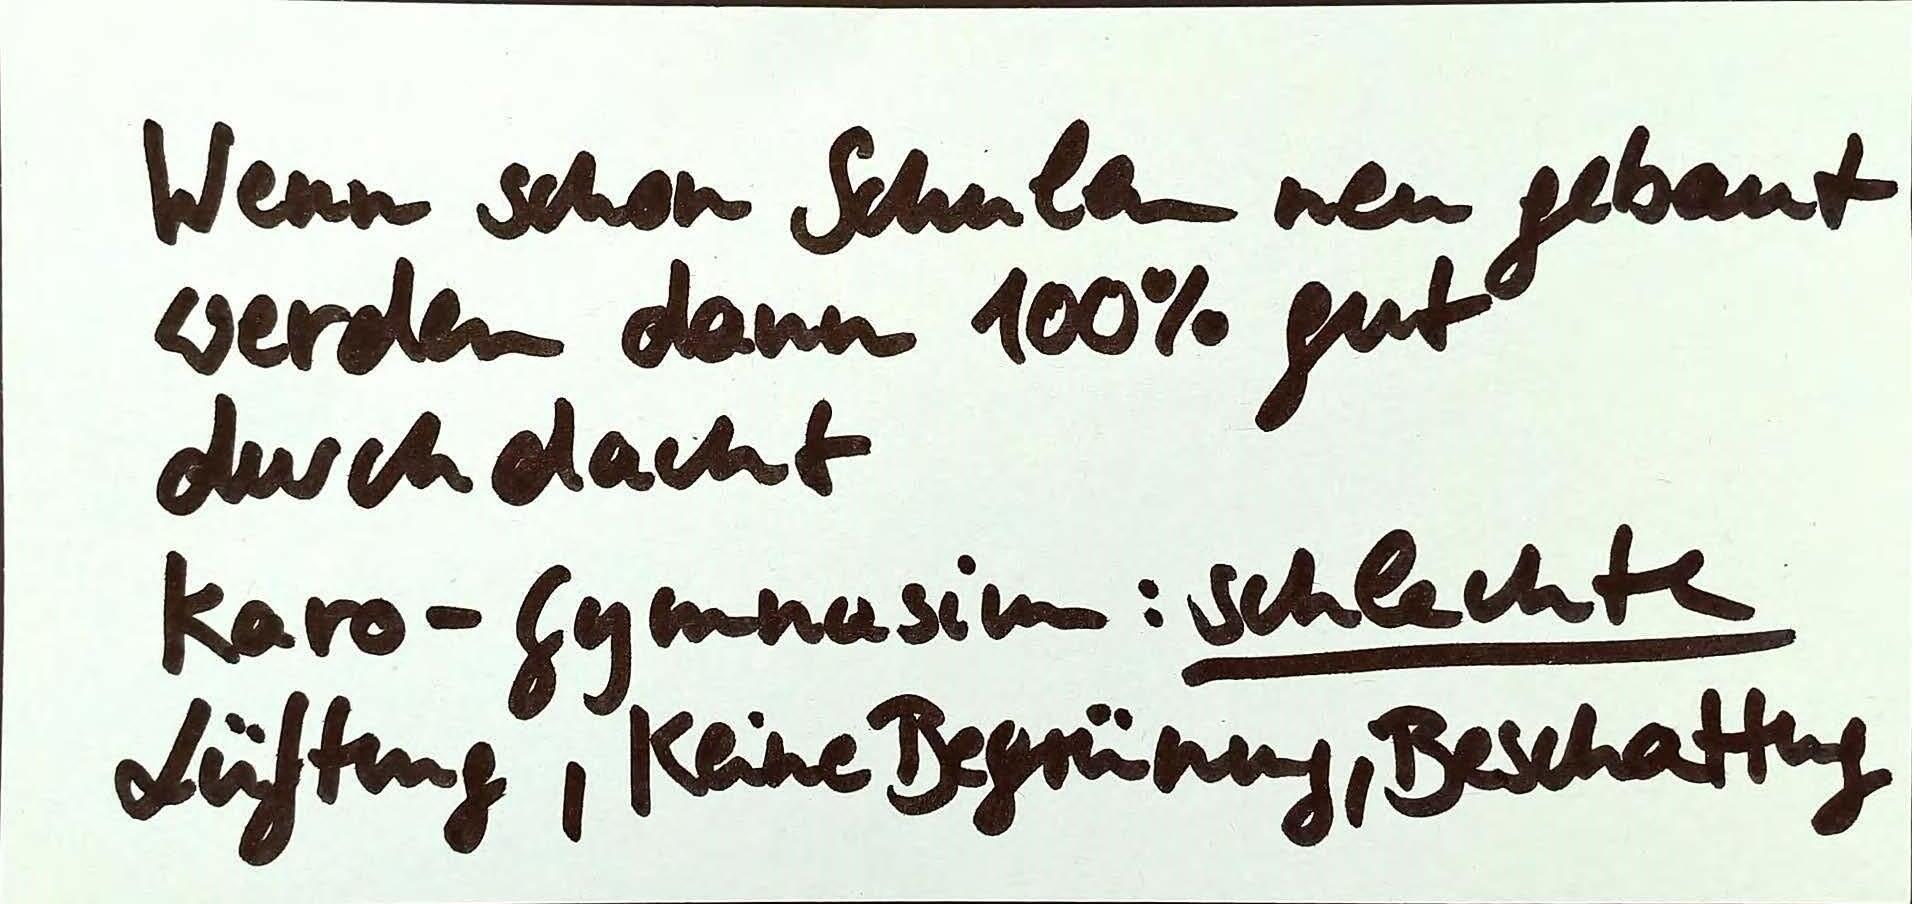 Wenn schon Schulen neu gebaut
werden dann 100% gut
durchdacht
Karo-Gymnasium : schlechte
Lüftung, Keine Begrünung, Beschattung